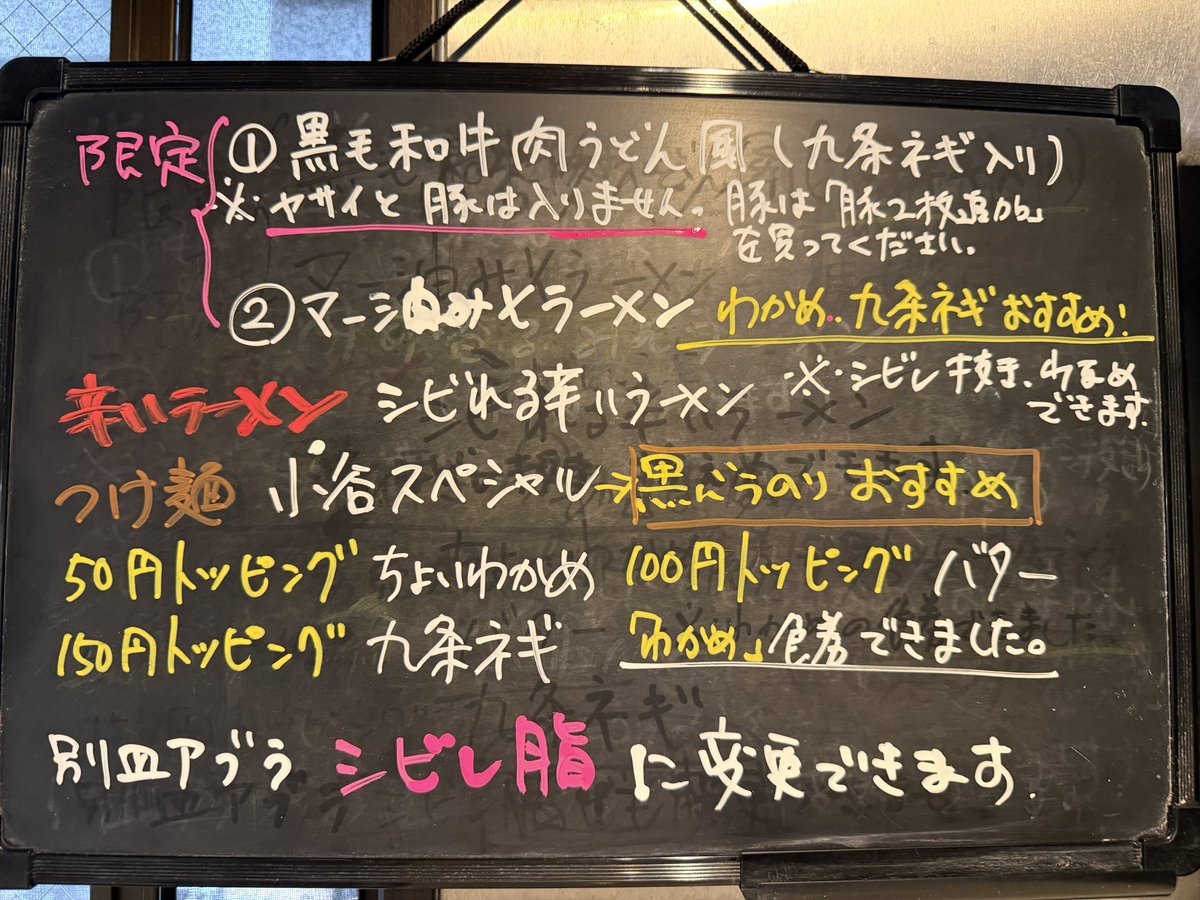 限定 ① 黒毛和牛肉うどん風（九条ネギ入り）
※ ヤサイと豚は入りません。豚は「豚2枚追から」
を買ってください。
② マー油みそラーメン わかめ、九条ネギおすすめ！
辛いラーメン シビれる辛いラーメン ※シビレ抜き、わるめ
できます.
つけ麺 小谷スペシャル→黒ばらのり おすすめ
50円トッピング ちょいわかめ 100円トッピング バター
150円トッピング 九条ネギ 「わかめ」改善できました。
別皿アブラ シビレ脂 に変更できます.